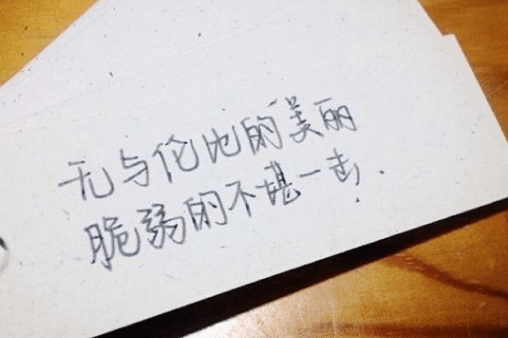 无与伦比的美丽
脆弱的不堪一击.